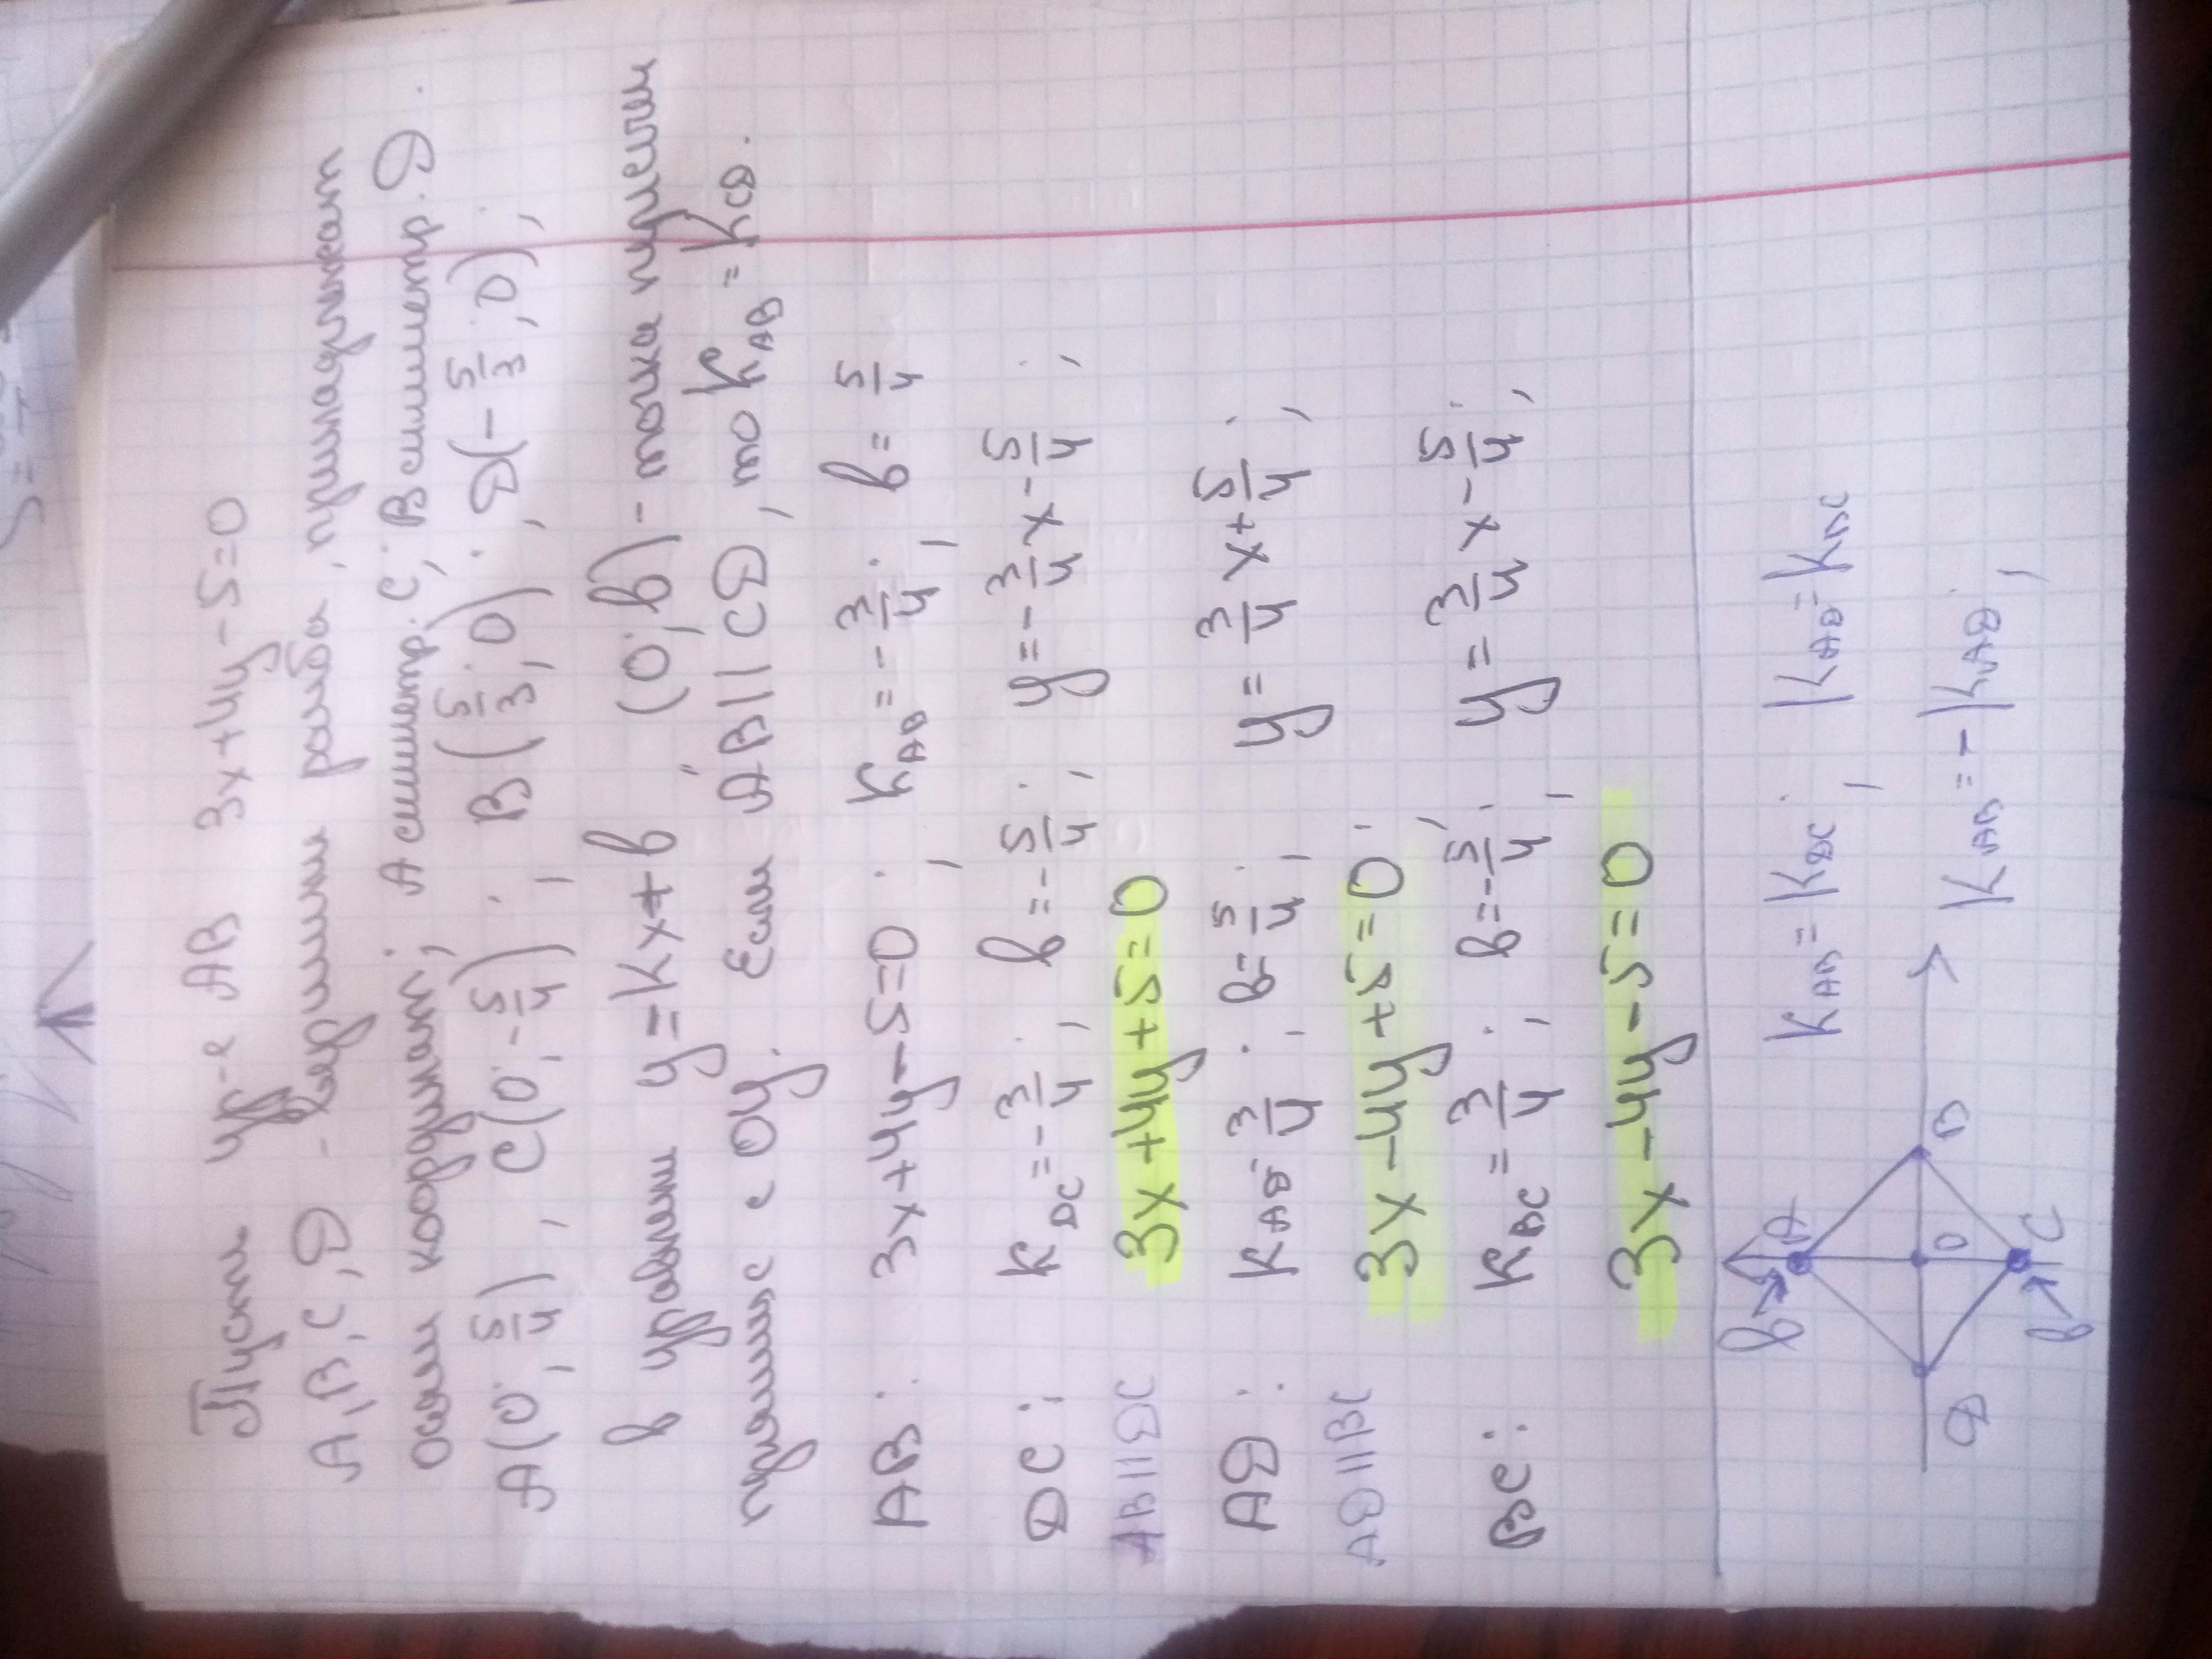 Пусть ур-е AB 3x+4y-5=0
A,B,C,D - вершины ромба, принадлежат
осям координат; A симметр. C; B симметр. D
A(0; 5/4), C(0; -5/4); B(5/3; 0); D(-5/3; 0);
В уравнении y=kx+b (0;b) - точка пересечения
прямых с Oy. Если AB||CD, то k_AB = k_CD.
AB: 3x+4y-5=0; k_AB = -3/4; b = 5/4
DC: k_DC = -3/4; b = -5/4; y = -3/4 x - 5/4;
AB||DC 3x+4y+5=0
AD: k_AD = 3/4; b = 5/4; y = 3/4 x + 5/4;
AD||BC 3x-4y+5=0;
BC: k_BC = 3/4; b = -5/4; y = 3/4 x - 5/4;
3x-4y-5=0
b A
k_AB = k_DC; k_AD = k_BC
D O B
k_AB = -k_AD;
b C